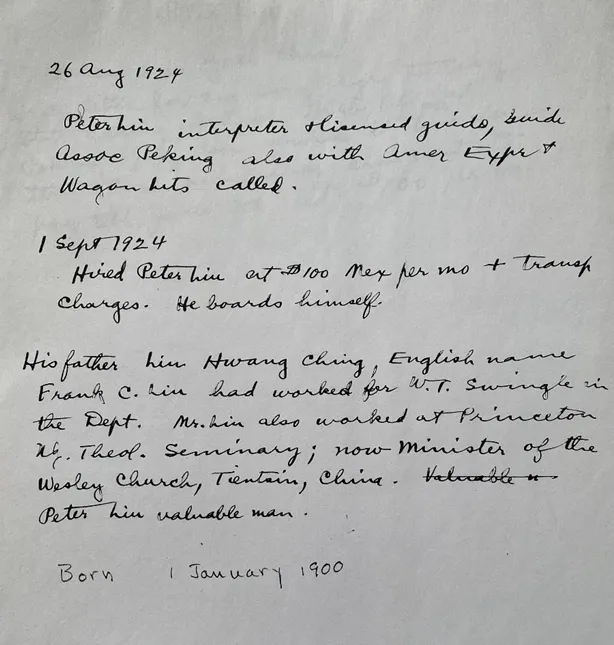 26 Aug 1924
Peter Liu interpreter + lisensed guide, Guide
Assoc Peking also with Amer Expr +
Wagon Lits called.
1 Sept 1924
Hired Peter Liu at $100 Mex per mo + transp
charges. He boards himself.
His father Liu Hwang Ching, English name
Frank C. Liu had worked for W.T. Swingle in
the Dept. Mr. Liu also worked at Princeton
Theol. Seminary; now Minister of the
Wesley Church, Tientsin, China. Valuable
Peter Liu valuable man.
Born 1 January 1900